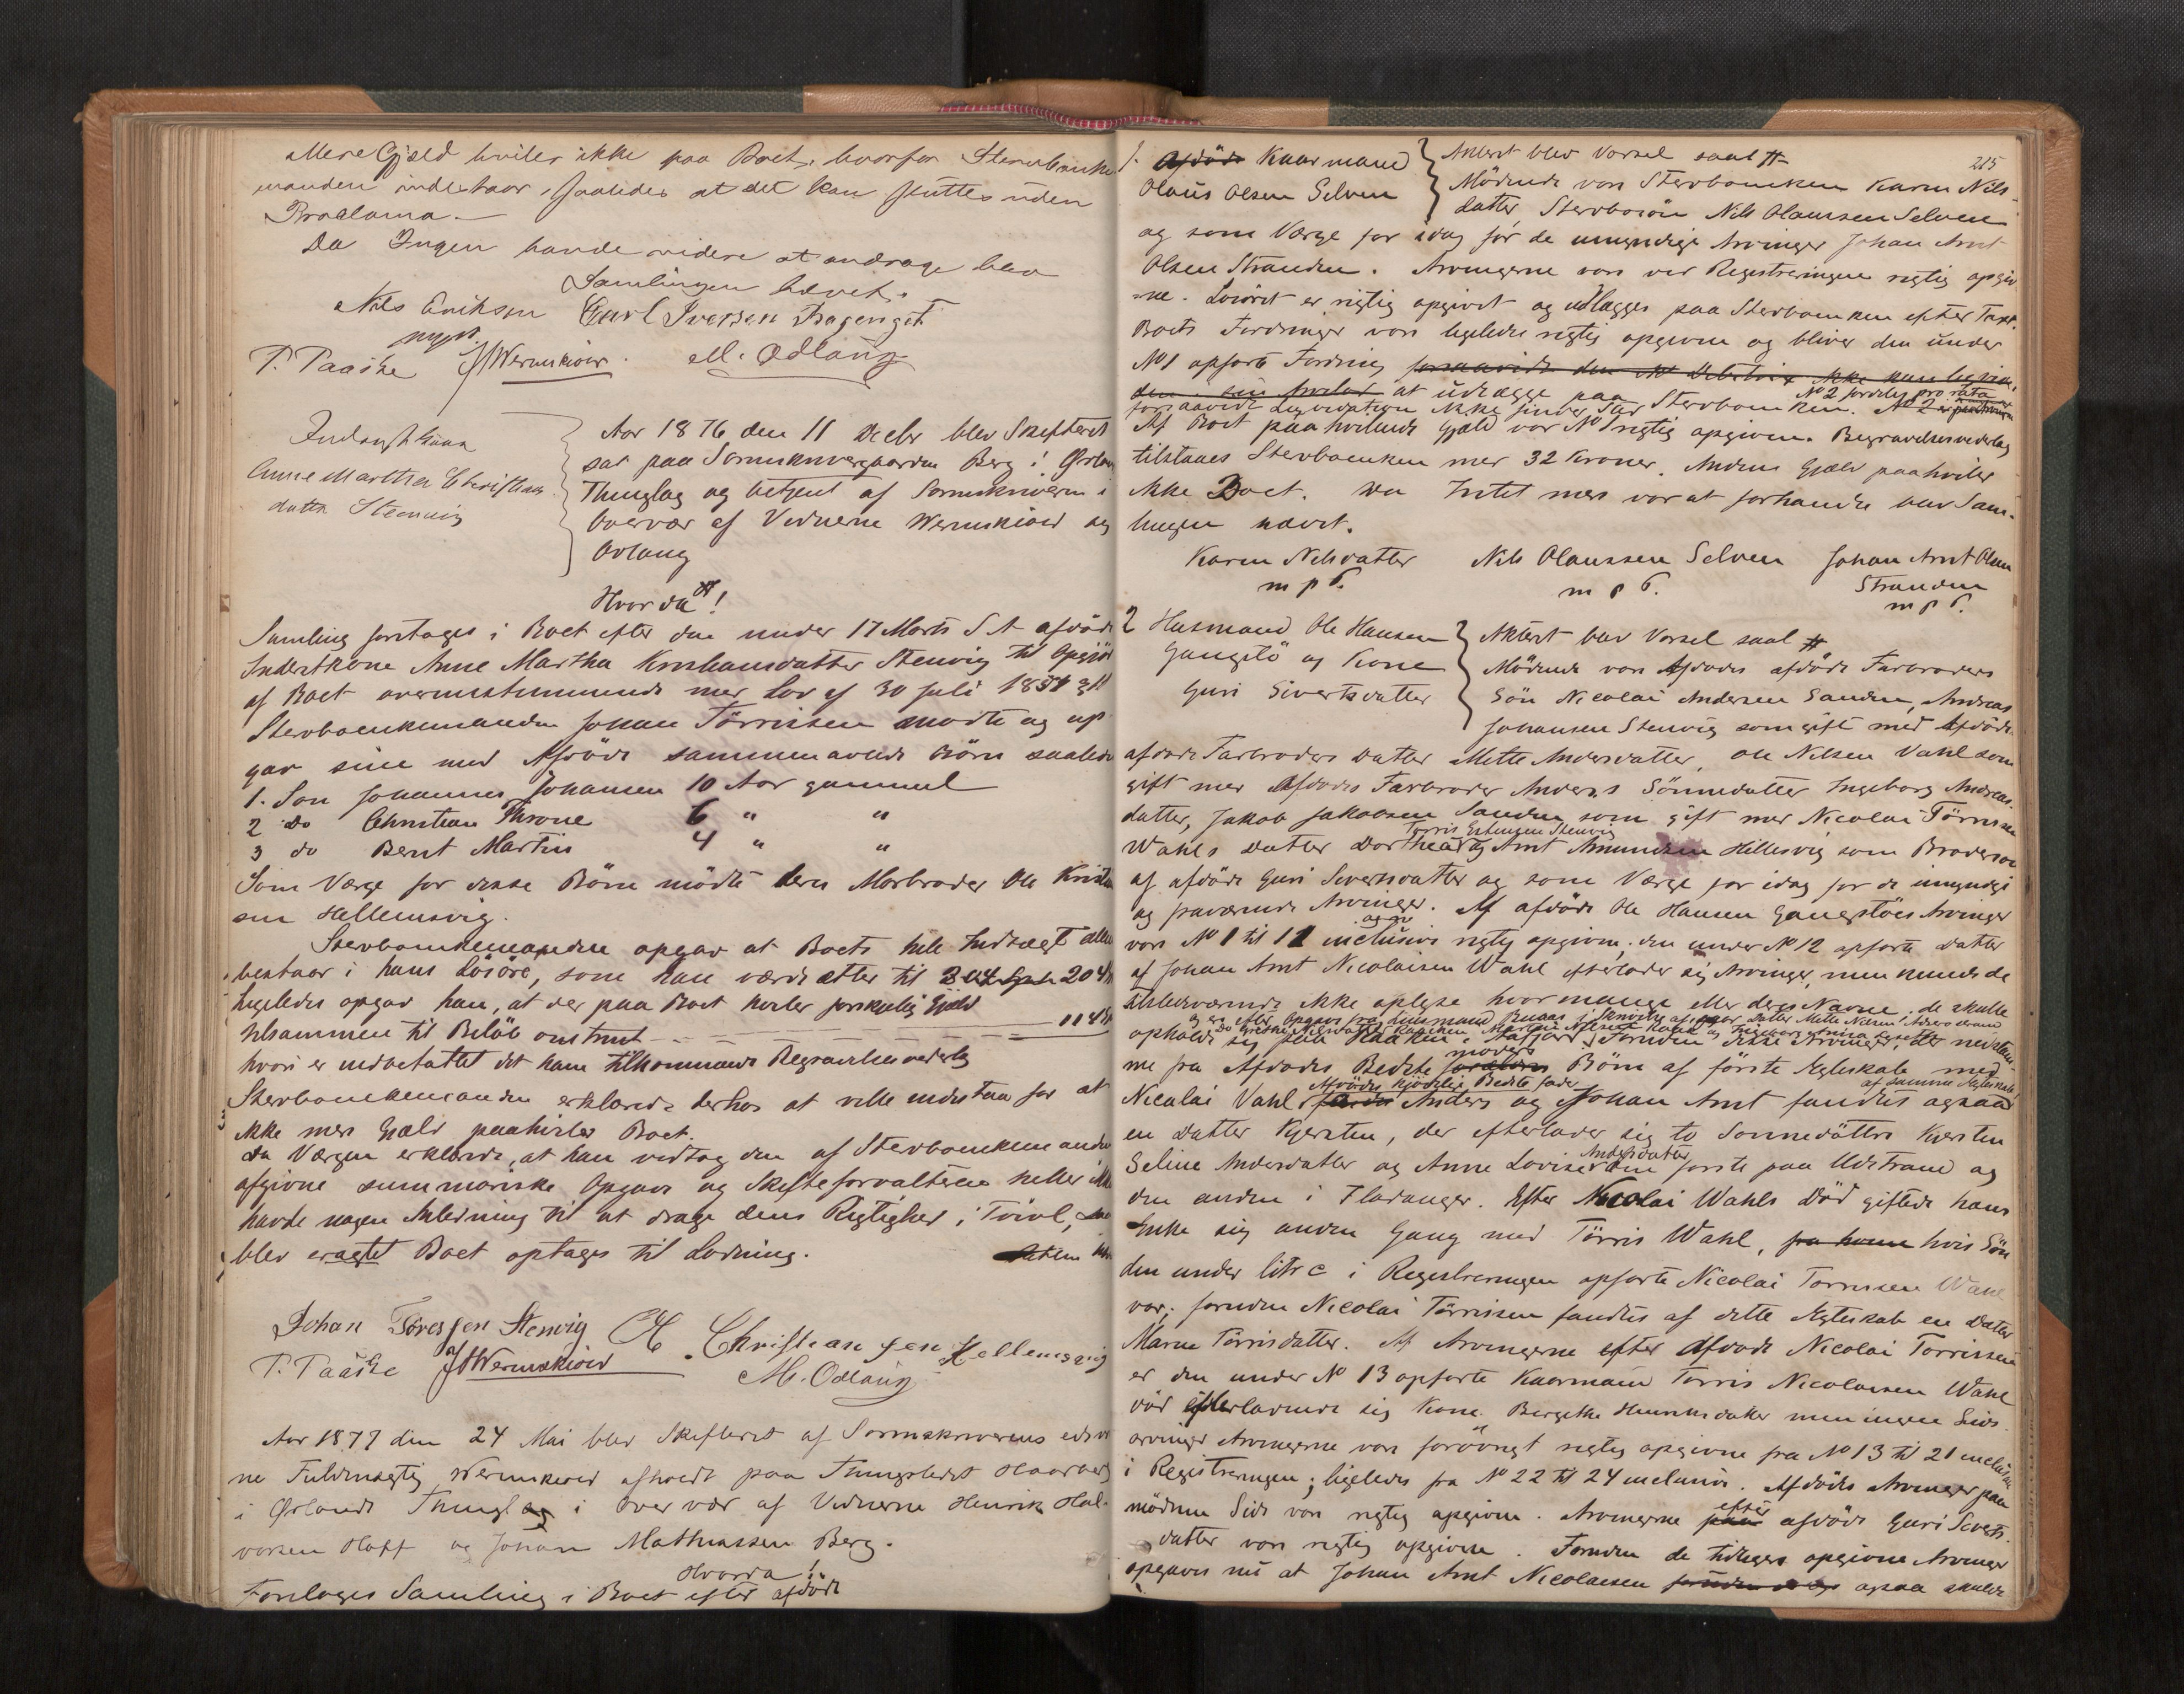 Mere Gjæld hviler ikke paa Boet, hvorfor Stervboenke-
manden indestaar, saaledes at det kan sluttes uden
Proclama.
Da Ingen havde videre at andrage blev
Samlingen hævet.
Nils Eriksen Carl Iversen
P. Paaske JWernskiold. M. Odlaug
Inderstkone
Anne Martha Christians
datter Stenvig
Aar 1876 den 11 Decbr blev Skifteret
sat paa Sorenskrivergaarden Berg i Ørland
Thinglag og betjent af Sorenskriveren i
Overvær af Vidnerne Wernskiold og
Odlaug
Hvorda!
Samling foretages i Boet efter den under 17 Marts d A afdøde
Inderstkone Anne Martha Stenvig til Opgjør
af Boet overensstemmende med Lov af 30 Juli 1851 §11
Stervboenkemanden Johan Törrissen mødte og op
gav sine med Afdöde sammenavlede Börn saaledes
1. Sön Johannes Johansen 10 Aar gammel
2 do Christian Throne 6 " "
3 do Bernt Martin 4 " "
Som Værge for disse Börn mödte deres Morbroder Ole Kristian
sen Hellemsvig.
Stervboenkemanden opgav at Boets hele Indtægt alene
bestaar i hans Lösöre, som han værdsætter til 204
ligeledes opgav han, at der paa Boet hviler forskjellig Gjæld
tilsammen til Beløb omtrent 118
hvori er indbefattet det ham tilkommende Begravelsesvederlag
Stervboenkemanden erklærede derhos at ville indestaa for at
ikke mere Gjæld paahviler Boet.
Da Værgen erklærede, at han vedtog den af Stervboenkemanden
afgivne summariske Opgave og Skifteforvalteren heller ikke
havde nogen Anledning til at drage dens Rigtighed i Tvivl,
blev eragtet Boet optages til Lodning.
Johan Töresen Stenvig O Christiansen Hellemsvig
P. Paaske JWernskiold M. Odlaug
Aar 1877 den 24 Mai blev Skifteret af Sorenskriverens edsvor
ne Fuldmægtig Wernskiold afholdt paa Thingstedet
i Ørlands Thinglag i Overvær af Vidnerne Henrik Hal-
vorsen Hoff og Johan Mathiassen Berg.
Hvorda!
Foretoges Samling i Boet efter afdöde
215
1. Afdöde Kaarmand
Olaus Olsen Selven
Aktert blev Varsel saal
Mödende var Stervboenken Karen Nils-
datter, Stervbosön Nils Olaussen Selven
og som Værge for idag for de umyndige Arvinger Johan Arnt
Olsen Stranden. Arvingerne vare ved Registreringen rigtig opgiv
ne. Lösöret er rigtig opgivet og udlægges paa Stervboenken efter Taxt.
Boets Fordringer vare ligeledes rigtig opgivne og bliver den under
No 1 opførte Fordring
at udlægge paa Stervboenken. No 2 fordeles pro rata
forsaavidt Liqvidation ikke finder Sted
Af Boet paahvilende Gjæld var No 1 rigtig opgiven. Begravelsesvederlag
tilstaaes Stervboenken med 32 Kroner. Anden Gjæld paahviler
ikke Boet. Da Intet mere var at forhandle blev Sam-
lingen hævet.
Karen Nilsdatter Nils Olaussen Selven Johan Arnt Olsen
m p P. m p P. Stranden
m p P.
2 Husmand Ole Hansen
Gangstö og Kone
Guri Sivertsdatter
Aktert blev Varsel saal
Mödende var Afdödes afdöde Farbroders
Sön Nicolai Andersen Sanden, Andreas
Johansen Stenvig som gift med Afdödes
afdöde Farbroders Datter Mette Andersdatter, Ole Nilsen Vahl som
gift med Afdödes Farbroder Anders Sönnedatter Ingeborg Andreas-
datter, Jakob Jakobsen Sanden som gift med Nicolai Törrissen
Törris Estensen Stenvig
Wahls Datter Dorthea og Arnt Amundsen Hillesvig som Brodersön
af afdöde Guri Sivertsdatter og som Værge for idag for de umyndige
og fraværende Arvinger. Af afdöde Ole Hansen Gangstöes Arvinger
vare No 1 til 11 inclusive rigtig opgivne; den under No 12 opførte Datter
af Johan Arnt Nicolaisen Wahl efterlader sig Arvinger, men kunde de
tilstedeværende ikke oplyse hvor mange eller deres Navne; de skulle
opholde sig Foruden disse Arvinger, der nedstam-
me fra Afdödes Bedste moders Börn af förste Ægteskab med
Afdödes kjödelige Bedstefader af samme Ægteskab
Nicolai Vahl Anders og Johan Arnt fandtes ogsaa
en Datter Kjersten, der efterlader sig to Sönnedöttre Kjersten
Andersdatter
Seline Andersdatter og Anne Lovise den første paa Udstrand og
den anden i Fladanger. Efter Nicolai Wahls Död giftede hans
Enke sig anden Gang med Törris Wahl, hvis Sön
den under litr c i Registreringen opførte Nicolai Törrissen Wahl
var; foruden Nicolai Törrissen fandtes af dette Ægteskab en Datter
Maren Törrisdatter. Af Arvingerne efter Afdöde Nicolai Törrissen
er den under No 13 opførte Kaarmand Törris Nicolaisen Wahl
död efterladende sig Kone Bergithe Henriksdatter men ingen Livs-
arvinger. Arvingerne vare forövrigt rigtig opgivne fra No 13 til 21 inclusive
i Registreringen; ligeledes fra No 22 til 24 inclusive. Afdödes Arvinger paa
mödrene Side vare rigtig opgivne. Arvingerne efter afdöde Guri Siverts-
datter vare rigtig opgivne. Foruden de tidligere opgivne Arvinger
opgaves nu at Johan Arnt Nicolaisen ogsaa skulde